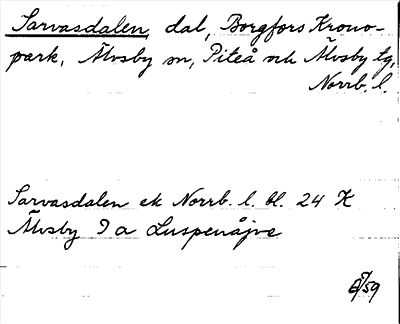 Sarvasdalen, dal, Borgfors Krono-
park, Älvsby sn, Piteå och Älvsby tg,
Norrb. l.
Sarvasdalen ek Norrb. l. bl. 24 K
Älvsby 9 a Luspenåjve
/59